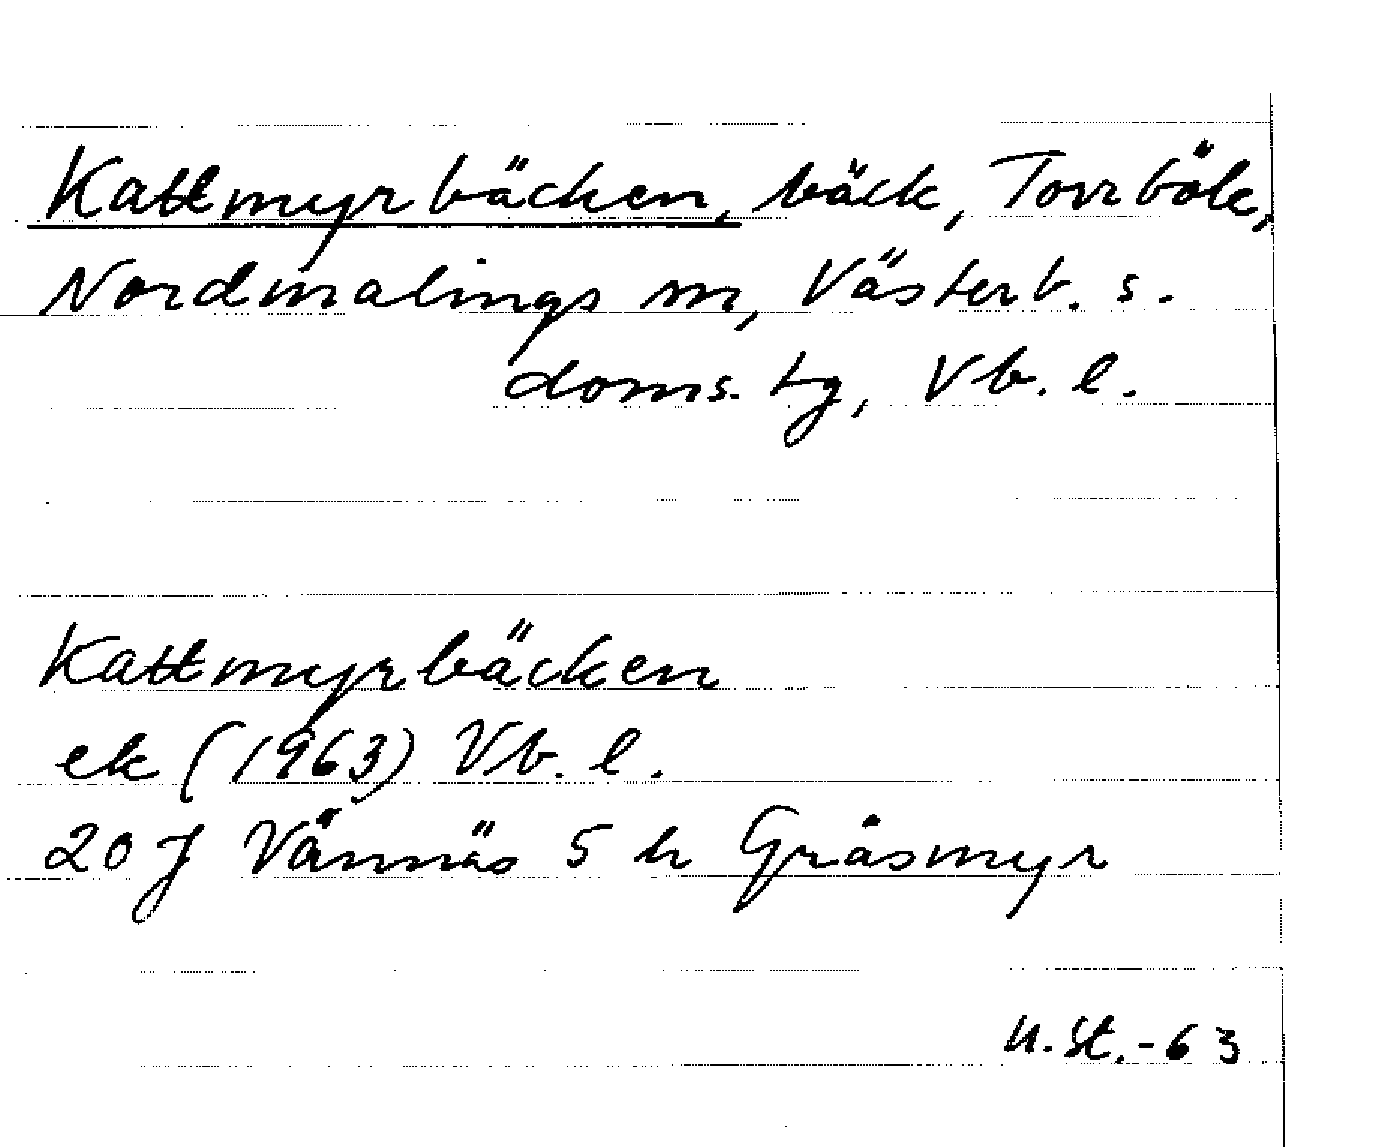 Kattmyrbäcken, bäck, Torrböle,
Nordmalings sn, Västerb. s.
doms. tg, Vb. l.
Kattmyrbäcken
ek (1963) Vb. l.
20 J Vännäs 5 h Gråsmyr
U. St. - 63